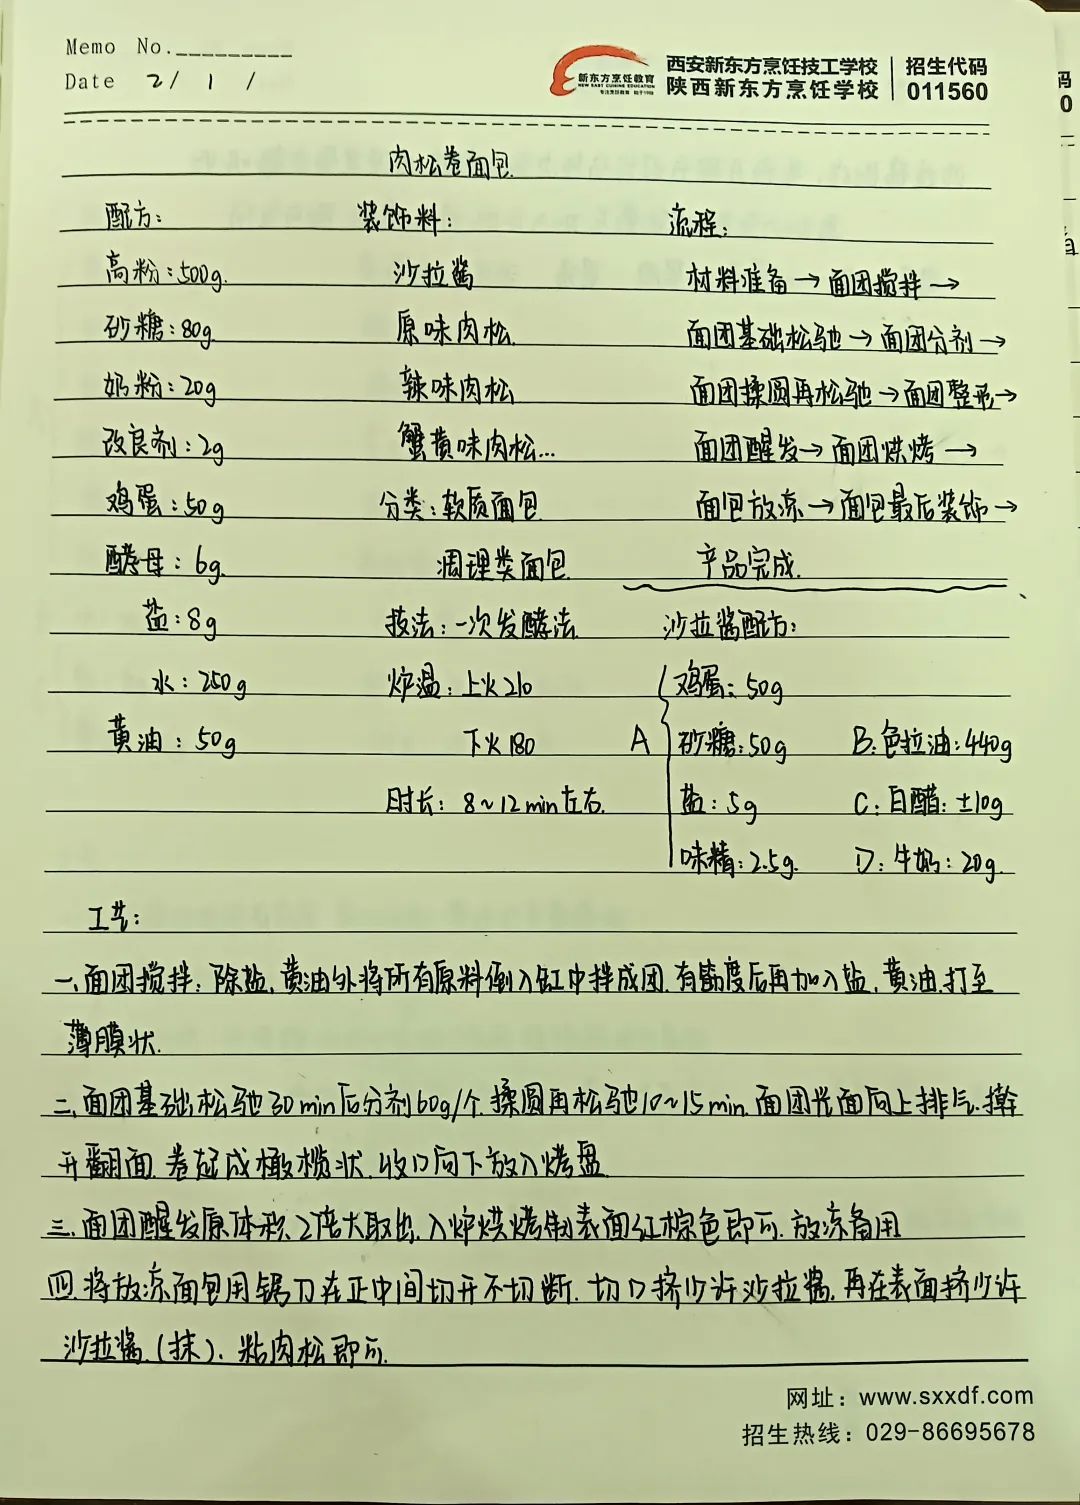 Memo No.
Date 2/ 1 /
新东方烹饪教育
NEW EAST CUISINE EDUCATION
西安新东方烹饪技工学校
陕西新东方烹饪学校
招生代码
011560
肉松卷面包
配方: 装饰料: 流程:
高粉:500g. 沙拉酱 材料准备→面团搅拌→
砂糖:80g. 原味肉松. 面团基础松驰→面团分剂→
奶粉:20g 辣味肉松 面团揉圆再松驰→面团整形→
改良剂:2g 蟹黄味肉松... 面团醒发→面团烘烤→
鸡蛋:50g 分类:软质面包. 面包放凉→面包最后装饰→
酵母:6g. 调理类面包. 产品完成.
盐:8g 技法:一次发酵法. 沙拉酱配方:
水:250g 炉温:上火210 鸡蛋:50g
黄油:50g 下火180 A 砂糖:50g B:色拉油:440g
时长:8~12min左右. 盐:5g C:白醋:±10g
味精:2.5g. D:牛奶:20g.
工艺:
一.面团搅拌:除盐.黄油外将所有原料倒入缸中拌成团.有筋度后再加入盐.黄油.打至
薄膜状.
二.面团基础松驰30min后分剂60g/个.揉圆再松驰10~15min.面团光面向上排气.擀
开翻面.卷起成橄榄状.收口向下放入烤盘.
三.面团醒发原体积2倍大取出.入炉烘烤制表面红棕色即可.放凉备用
四.将放凉面包用锯刀在正中间切开不切断.切口挤少许沙拉酱.再在表面挤少许
沙拉酱.(抹).粘肉松即可.
网址:www.sxxdf.com
招生热线:029-86695678